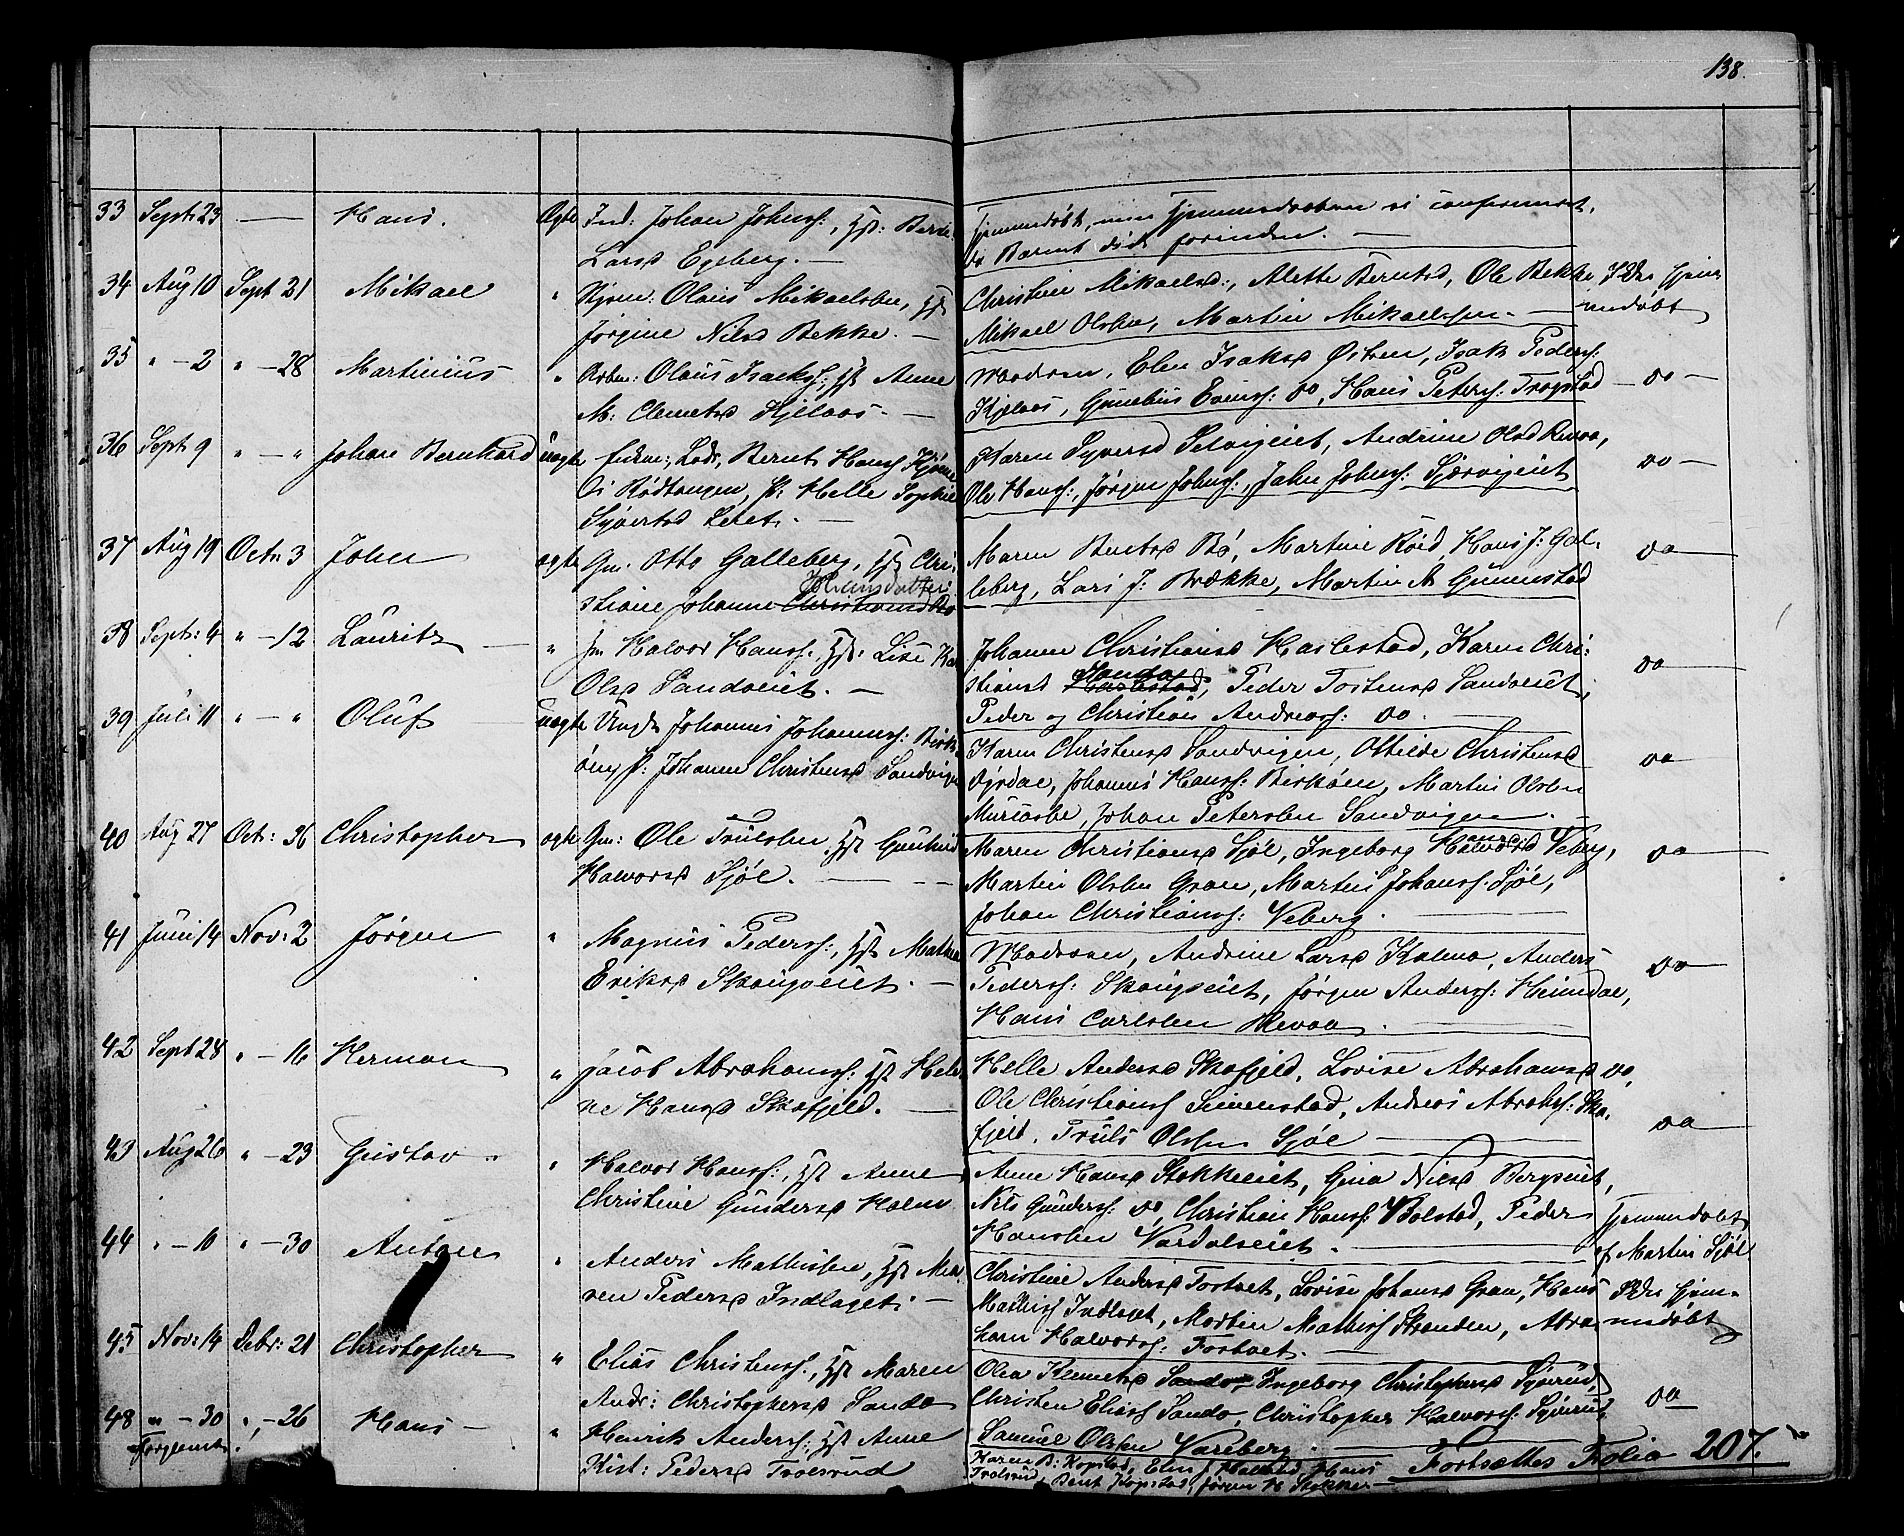 138.
33 Sept: 23 — Hans. Ægte Ind: Johan Johnss:, Hst: Berte
Larsd Egeberg. —
Hjemmedøbt, men Hjemmedaaben ei confirmeret,
da Barnet døde forinden. —
34 Aug 10 Sept 21 Mikael " Olaus Mikaelsen, Hst
Jørgine Nilsd Bekke. —
Christine Mikaelsd:, Alette Berntsd, Ole Bekke
Mikael Olssen, Martin Mikaelsen. —
Ikke hjem-
medøbt
35 " — 2 " — 28 Martinius " Arbm: Olaus Isakss:, Hst Anne
M: Clemetsd Kjelaas. —
Madreen, Elen Isaksd Østen, Isak Peders:
Kjelaas, Gunelius Evenss: do, Hans Peterss: Trogstad
— do —
36 Sept 9 " — " Johan Bernhard uægte Lods, Bernt Hanss
i Rødtangen, P: Helle Sophie
Syvertsd
Karen Syversd Selvigeiet, Andrine Olsd Revaa,
Ole Hanss:, Jørgen Johnss:, John Johnss:
do —
37 Aug 19 Octr: 3 John ægte Gm. Otto Galleberg, Hst Chri-
Johansdatter
stiane Johanne Christiansd Bø
Maren Berntsd Bø, Martine Røed, Hans J: Gal-
leberg, Lars J: Brække, Martin A Gunnestad
do —
38 Sept: 4 " — 12 Lauritz — " Halvor Hanss:, Hst: Lise
Olsd Sandveiet. —
Johanne Christiansd Haslestad, Karen Chri-
Sando
stiansd Haslestad, Peder Torstensd Sandveiet,
Peder og Christian Andreass: do. —
do —
39 Juli 11 " — " Oluf — uægte Ungk Johannes Johanness: Birk-
øen, P: Johanne Christensd Sandvigen
Karen Christensd Sandvigen, Ottilde Christensd
Dyrdal, Johannes Hanss: Birkøen, Martin Olsen
Muraasbe, Johan Petersen Sandvigen. —
do —
40 Aug 27 Oct: 26 Christopher ægte Gm: Ole Trulsen, Hst Gunhild
Halvorsd Sjøl. —
Hansd
Maren Christiansd Sjøl, Ingeborg Halvorsd Veberg,
Martin Olsen Gran, Martin Johanss: Sjøl,
Johan Christianss: Veberg. —
do —
41 Juni 14 Nov: 2 Jørgen " Magnus Pederss:, Hst Mathea
Eriksd Skaugseiet. —
Madreen, Andrine Larsd Kalvø, Anders
Pederss: Skaugseiet, Jørgen Anderss: Heimdal,
Hans Carlsen Revaa. —
do —
42 Sept 28 " — 16 Herman " Jacob Abrahamss: Hst Hele-
ne Hansd Skafjeld. —
Helle Andersd Skafjeld, Lovise Abrahamsd do,
Ole Christianss Simenstad, Andreas Abrahss: Ska-
fjeld, Truls Olssen Sjøl —
do —
43 Aug 26 " — 23 Gustav " Halvor Hanss:, Hst Anne
Christine Gundersd Holm
Anne Hansd Stokkeeiet, Gina Nilsd Bergseiet,
Nils Gunderss: do, Christian Hanss: Bolstad, Peder
Hansen Vardalseiet. —
Hjemmedøbt
af Martin Sjøl
44 " — 10 " — 30 Anton " Anders Mathissen, Hst Ma-
ren Pedersd Indlaget. —
Christine Andersd Fortvet, Lovise Johansd Gran, Hans
Mathiss Indlaget, Morten Mathiss Stranden, Abra-
ham Halvorss: Fortvet. —
Ikke hjem-
medøbt
45 Nov: 14 Decbr: 21 Christopher " Elias Christenss:, Hst Maren
Andr: Christophersd Sando
Olea Klemetsd Sando, Ingeborg Christophersd Gjørud,
Christen Eliass Sando, Christopher Halvorss: Gjørud,
Samuel Olssen Vareberg. —
do —
48 " — 30 " — 26 Hans — " Henrik Anderss:, Hst Anne
Kist: Pedersd Trolsrud
Karen B: Kopstad, Elen J Hans
Trolsrud, Bent Kopstad, Jørgen H Stokke —
Fortsættes Folio 207.